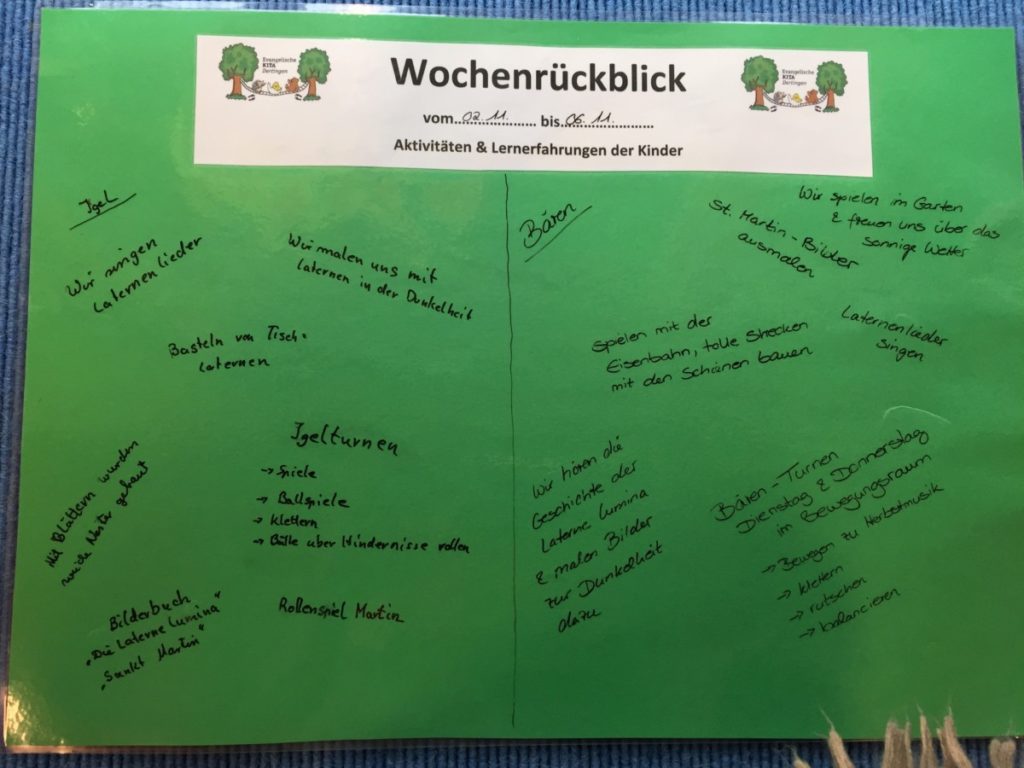 Evangelische
KITA
Dertingen
Wochenrückblick
Evangelische
KITA
Dertingen
vom..02.11................ bis..06.11....................
Aktivitäten & Lernerfahrungen der Kinder
Igel
Wir singen
Laternenlieder
Wir malen uns mit
Laternen in der Dunkelheit
Basteln von Tisch-
laternen
Igelturnen
→ Spiele
→ Ballspiele
→ Klettern
→ Bälle über Hindernisse rollen
Mit Blättern wurden
weiche Nester gebaut
Bilderbuch
„Die Laterne Lumina“
„Sankt Martin“
Rollenspiel Martin
Bären
St. Martin-Bilder
ausmalen
Wir spielen im Garten
& freuen uns über das
sonnige Wetter
Spielen mit der
Eisenbahn, tolle Strecken
mit den Schienen bauen
Laternenlieder
singen
Wir hören die
Geschichte der
Laterne Lumina
& malen Bilder
zur Dunkelheit
dazu
Bären-Turnen
Dienstag & Donnerstag
im Bewegungsraum
→ Bewegen zu Herbstmusik
→ klettern
→ rutschen
→ balancieren